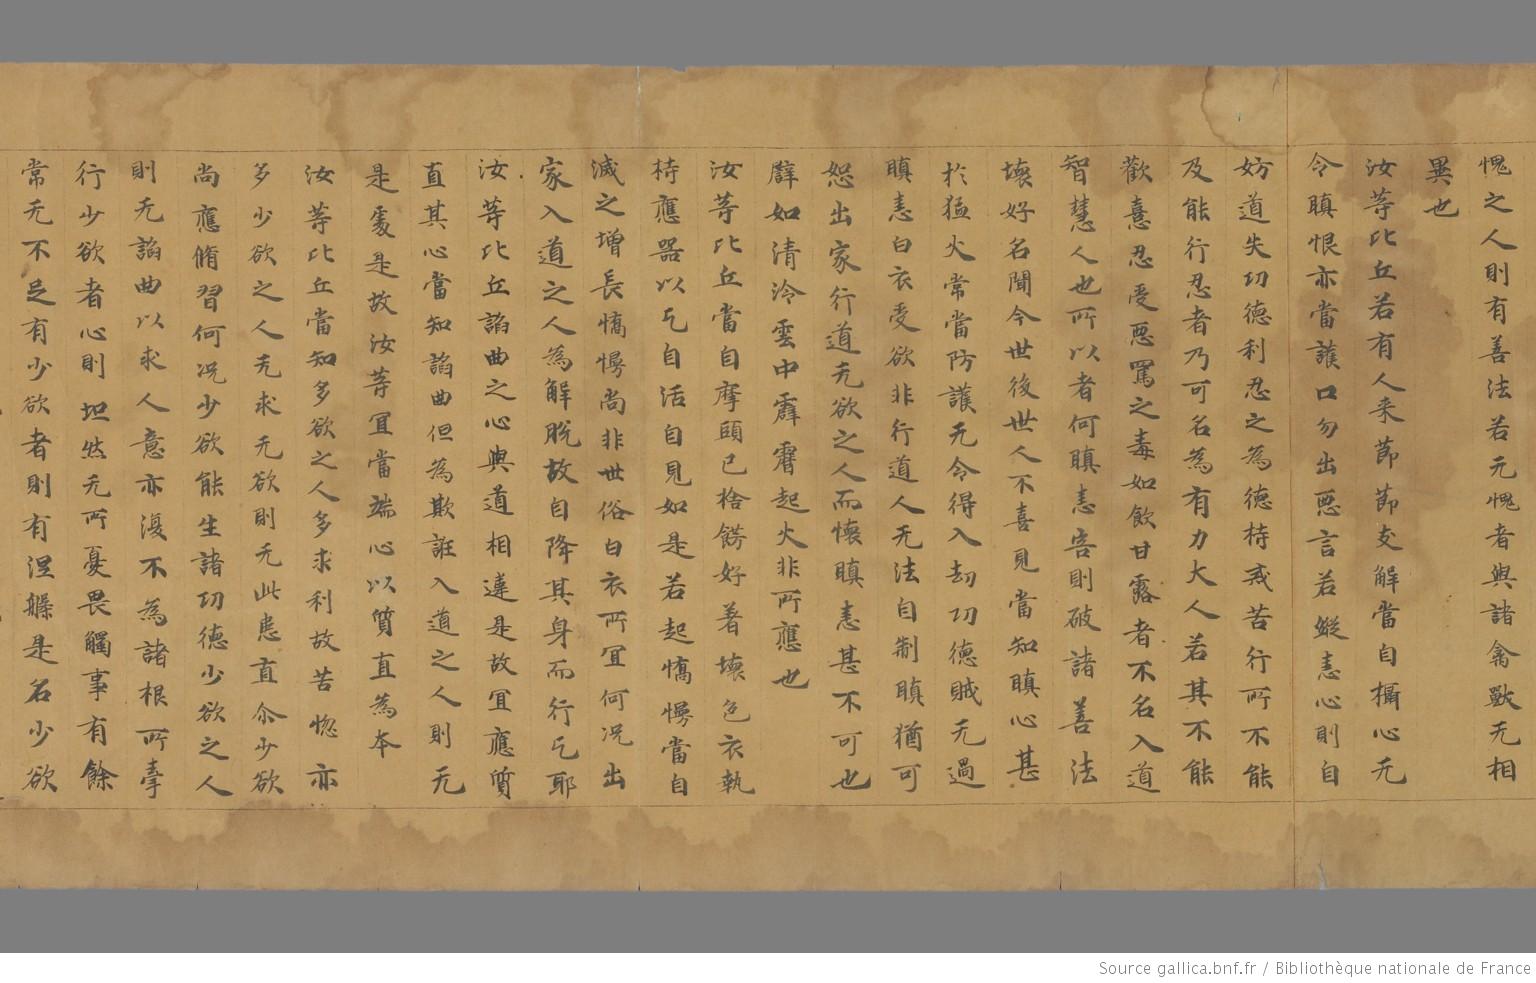 愧之人則有善法若无愧者與諸禽獸无相
異也
汝等比丘若有人来節節支解當自攝心无
令瞋恨亦當護口勿出惡言若縱恚心則自
妨道失功德利忍之為德持戒苦行所不能
及能行忍者乃可名為有力大人若其不能
歡憙忍受惡罵之毒如飲甘露者不名入道
智慧人也所以者何瞋恚害則破諸善法
壞好名聞今世後世人不喜見當知瞋心甚
於猛火常當防護无令得入劫功德賊无過
瞋恚白衣受欲非行道人无法自制瞋猶可
恕出家行道无欲之人而懷瞋恚甚不可也
譬如清泠雲中霹靂起火非所應也
汝等比丘當自摩頭已捨餝好著壞色衣執
持應器以乞自活自見如是若起憍慢當自
滅之增長憍慢尚非世俗白衣所冝何況出
家入道之人為解脫故自降其身而行乞耶
汝等比丘諂曲之心與道相違是故冝應質
直其心當知諂曲但為欺誑入道之人則无
是處是故汝等冝當端心以質直為本
汝等比丘當知多欲之人多求利故苦惱亦
多少欲之人无求无欲則无此患直尒少欲
尚應脩習何況少欲能生諸功德少欲之人
則无諂曲以求人意亦復不為諸根所牽
行少欲者心則坦然无所憂畏觸事有餘
常无不足有少欲者則有涅槃是名少欲
Source gallica.bnf.fr / Bibliothèque nationale de France